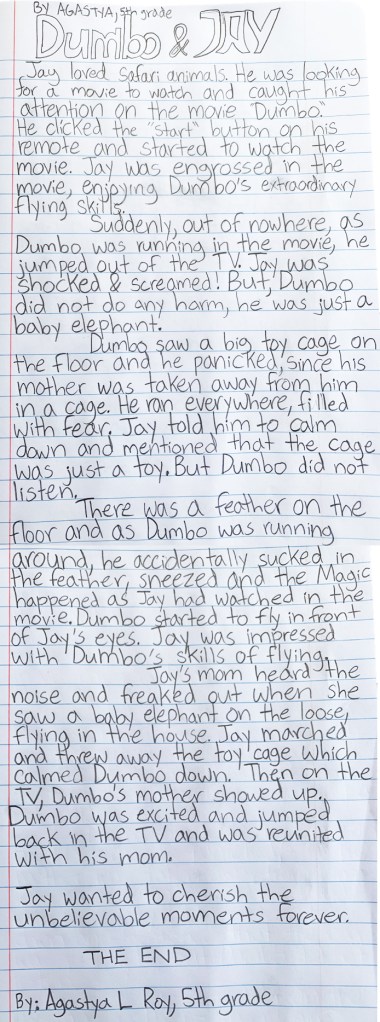 BY AGASTYA, 5th grade
Dumbo & JAY
Jay loved safari animals. He was looking
for a movie to watch and caught his
attention on the movie "Dumbo."
He clicked the "start" button on his
remote and started to watch the
movie. Jay was engrossed in the
movie, enjoying Dumbo's extraordinary
flying skills.
Suddenly, out of nowhere, as
Dumbo was running in the movie, he
jumped out of the TV. Jay was
shocked & screamed! But, Dumbo
did not do any harm, he was just a
baby elephant.
Dumbo saw a big toy cage on
the floor and he panicked, since his
mother was taken away from him
in a cage. He ran everywhere, filled
with fear. Jay told him to calm
down and mentioned that the cage
was just a toy. But Dumbo did not
listen.
There was a feather on the
floor and as Dumbo was running
around, he accidentally sucked in
the feather, sneezed and the Magic
happened as Jay had watched in the
movie. Dumbo started to fly in front
of Jay's eyes. Jay was impressed
with Dumbo's skills of flying.
Jay's mom heard the
noise and freaked out when she
saw a baby elephant on the loose,
flying in the house. Jay marched
and threw away the toy cage which
calmed Dumbo down. Then on the
TV, Dumbo's mother showed up.
Dumbo was excited and jumped
back in the TV and was reunited
with his mom.
Jay wanted to cherish the
unbelievable moments forever.
THE END
By: Agastya L Roy, 5th grade